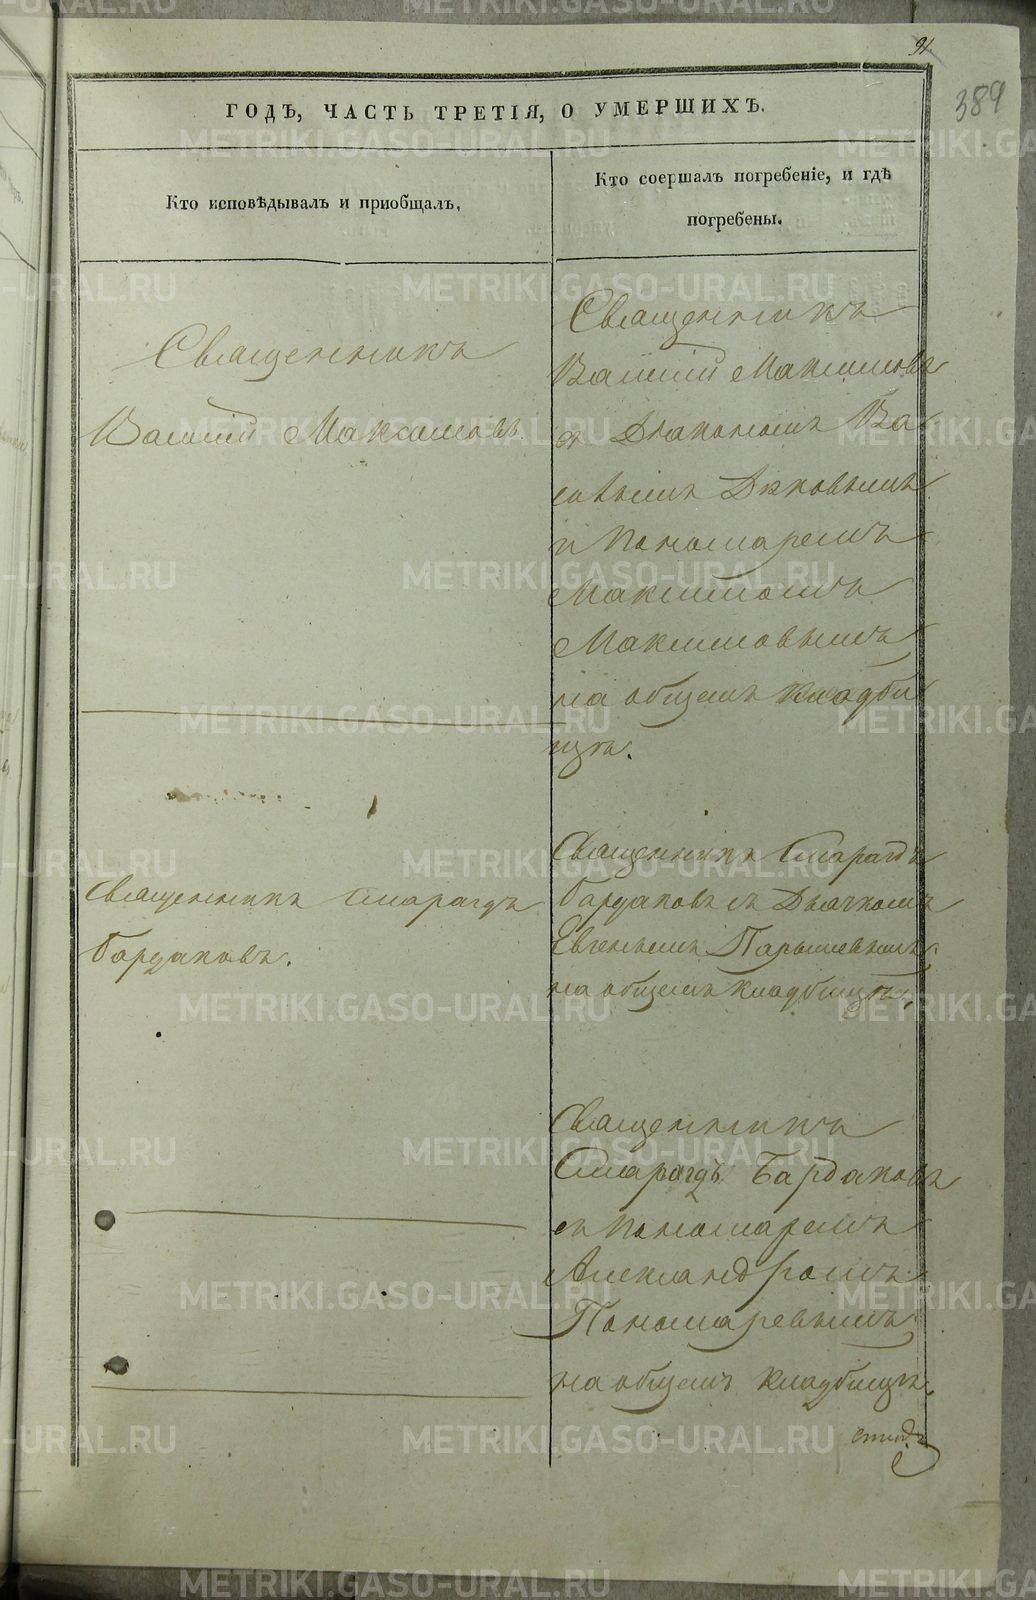 91
389
ГОДЪ, ЧАСТЬ ТРЕТІЯ, О УМЕРШИХЪ.
Кто исповѣдывалъ и приобщалъ,
Кто соершалъ погребеніе, и гдѣ
погребены.
Священникъ
Василій Максимовъ.
Священникъ
Василій Максимовъ
съ Діакономъ
и Пономаремъ
Максимовымъ
на общемъ кладби
щѣ.
Священникъ Смарагдъ
Бардаковъ.
Священникъ Смарагдъ
Бардаковъ съ Дьячкомъ
Евгеньемъ Парышевымъ
на общемъ кладбищѣ,
Священникъ
Смарагдъ Бардаковъ
съ Пономаремъ
Александромъ
Пономаревымъ
на общемъ кладбищѣ.
METRIKI.GASO-URAL.RU